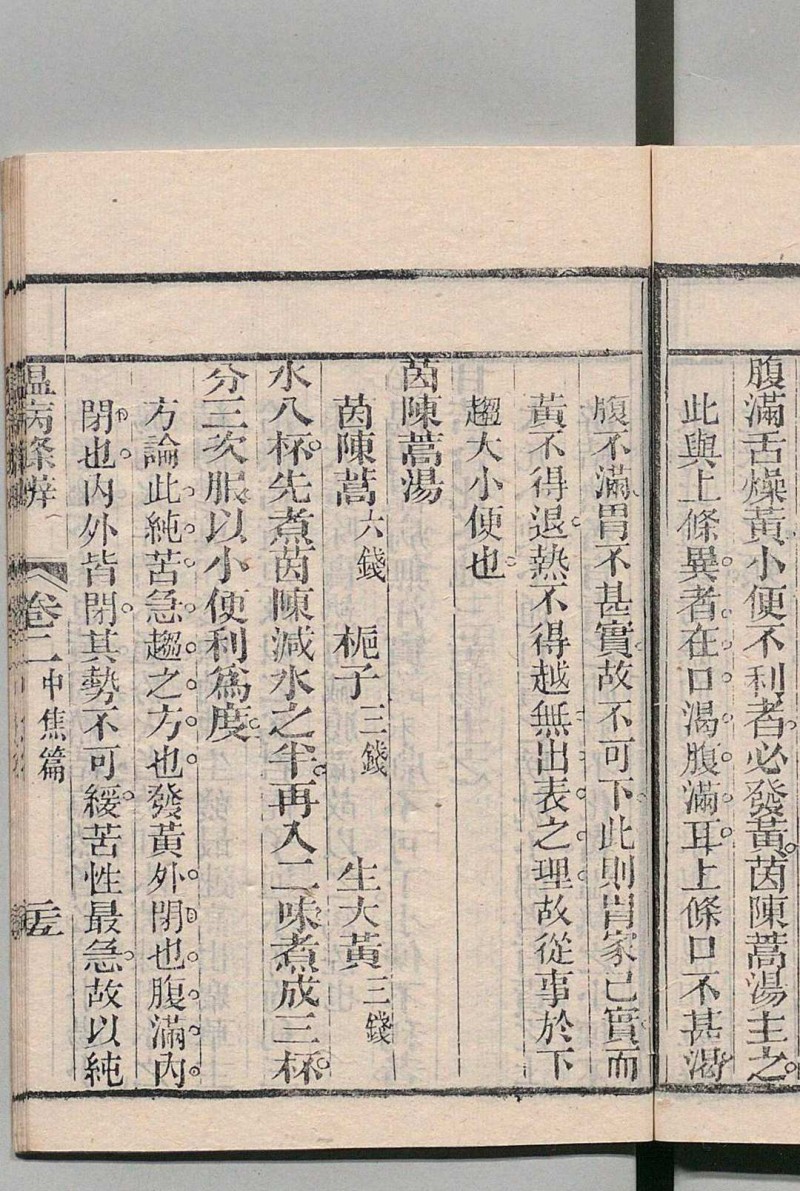 腹滿舌燥黃小便不利者必發黃茵陳蒿湯主之
此與上條異者在口渴腹滿耳上條口不甚渴
腹不滿胃不甚實故不可下此則胃家已實而
黃不得退熱不得越無出表之理故從事於下
趨大小便也
茵陳蒿湯
茵陳蒿六錢　梔子三錢　生大黃三錢
水八杯先煮茵陳減水之半再入二味煮成三杯
分三次服以小便利爲度
方論此純苦急趨之方也發黃外閉也腹滿內
閉也內外皆閉其勢不可緩苦性最急故以純
溫病條辨　卷二中焦篇